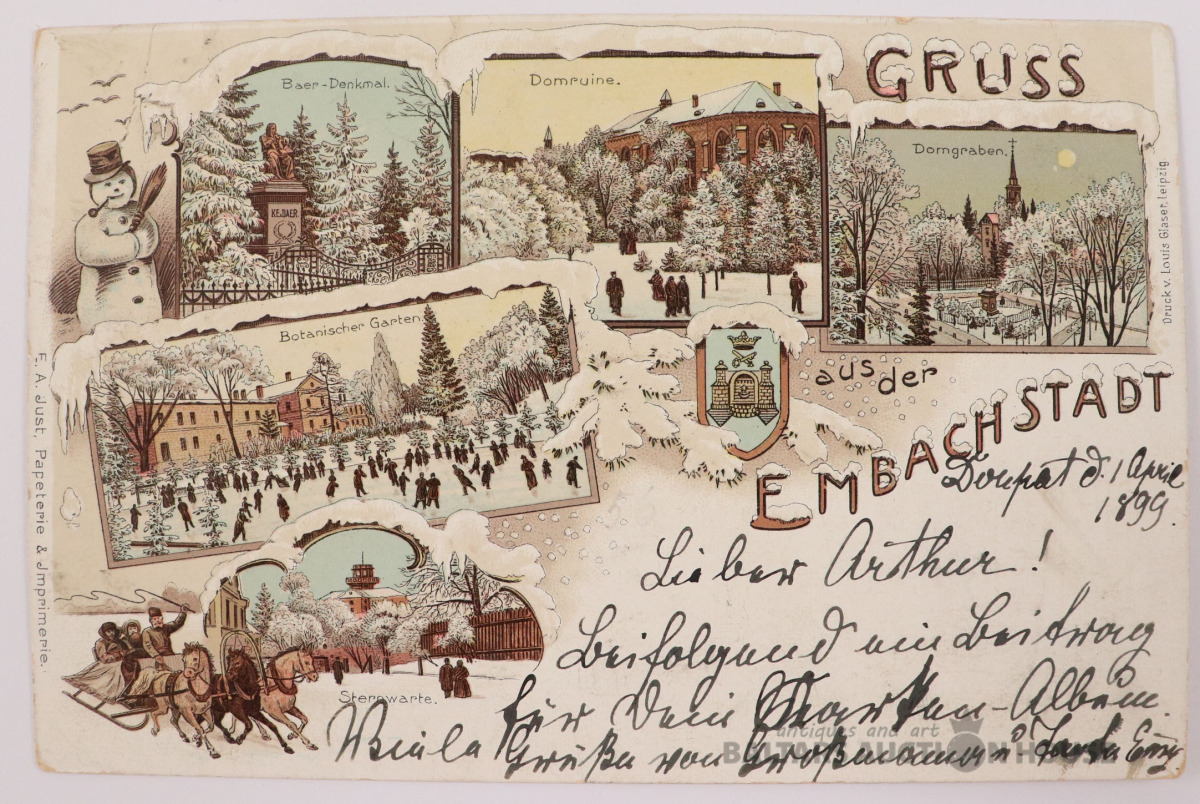 GRUSS
aus der
EMBACHSTADT
Baer-Denkmal.
KE.v.BAER
Domruine.
Domgraben.
Botanischer Garten.
Sternwarte.
E. A. Just, Papeterie & Jmprimerie.
Druck v. Louis Glaser, Leipzig
Dorpat d. 1 April
1899.
Lieber Arthur!
Beifolgend ein Beitrag
für Dein Marken-Album.
Viele Grüße von Großmama u Tante Emy.
antiques and art
AUCTION HOUSE